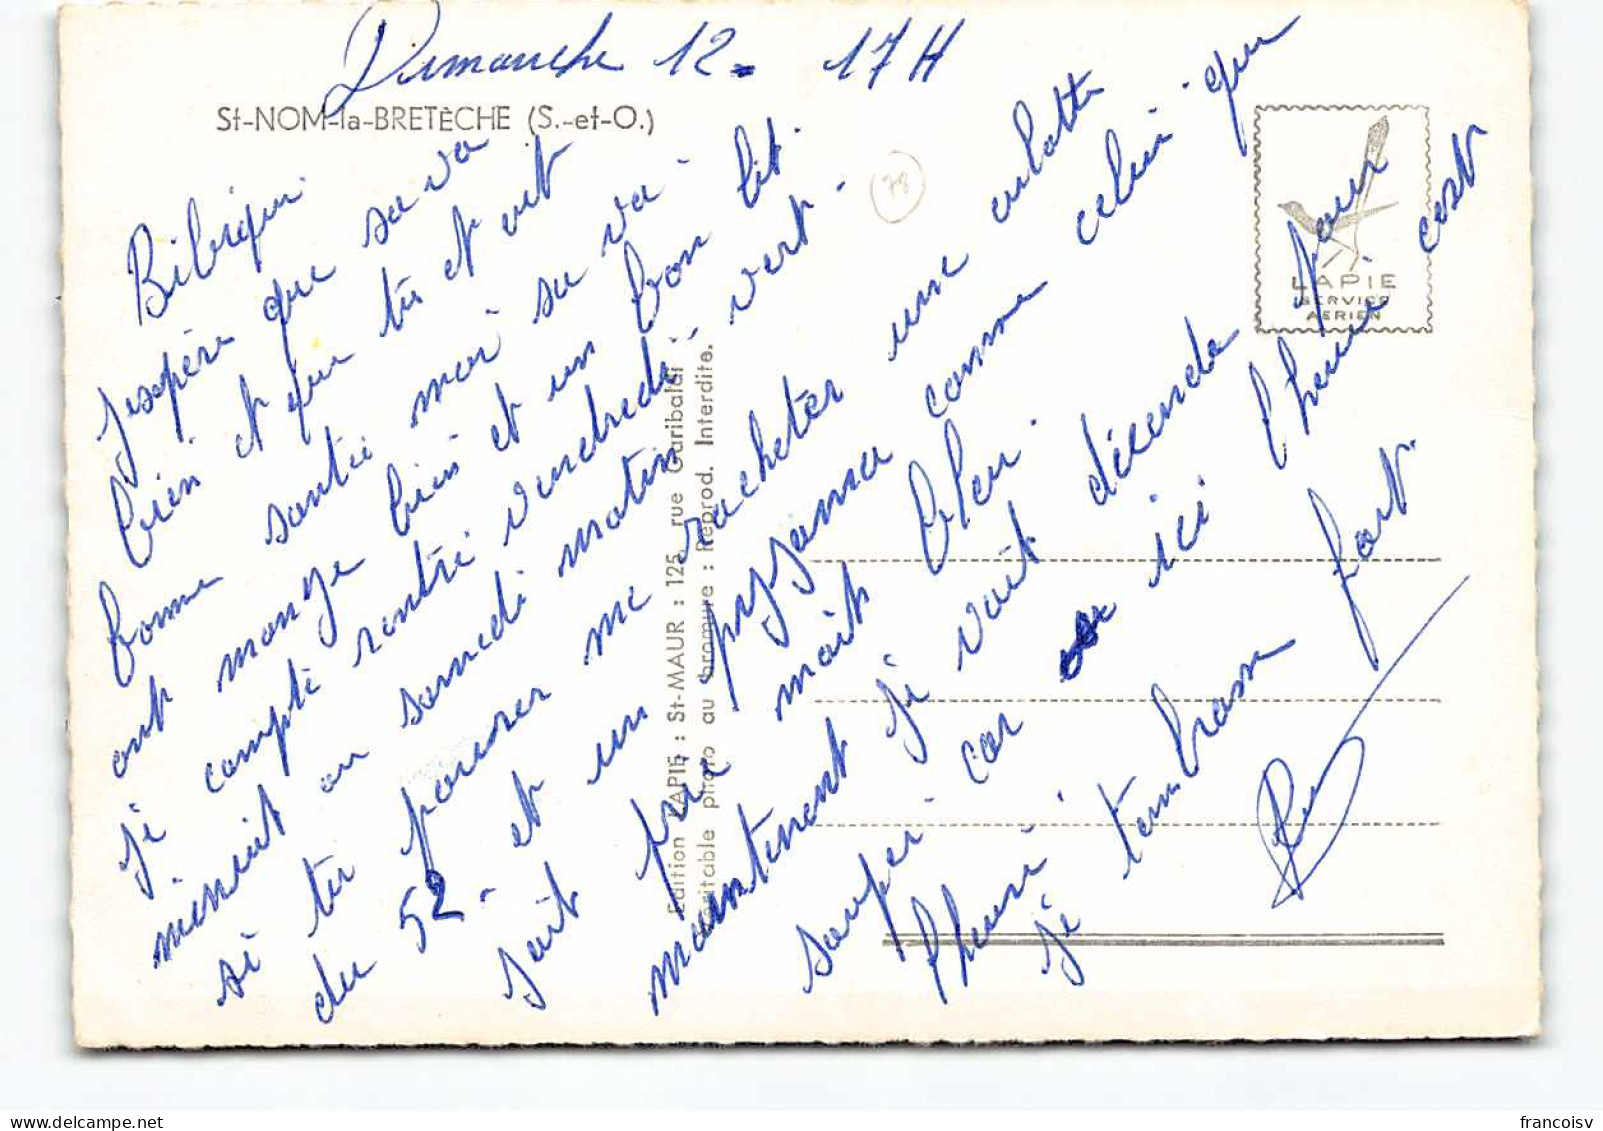 Dimanche 12 - 17 H
St-NOM-la-BRETÈCHE (S.-et-O.)
78
Bibiqui.
Jespère que sa va
bien et que tu et cet
bonne santé moi sa va.
ont mange bien et un bon lit.
je compte rentré vendredi. vert.
minuit ou samedi matin
si tu pouser me racheter une culotte
du 52 - et un pyjama comme celui que
jait pri mait bleu.
maintenent je vait décendre pour
souper car ici l'heure cest
l'heure.
je tembrasse fort.
LAPIE
SERVICE
AERIEN
Edition LAPIE : St-MAUR : 125, rue Garibaldi.
Véritable photo au bromure : Reprod. Interdite.
francoisv